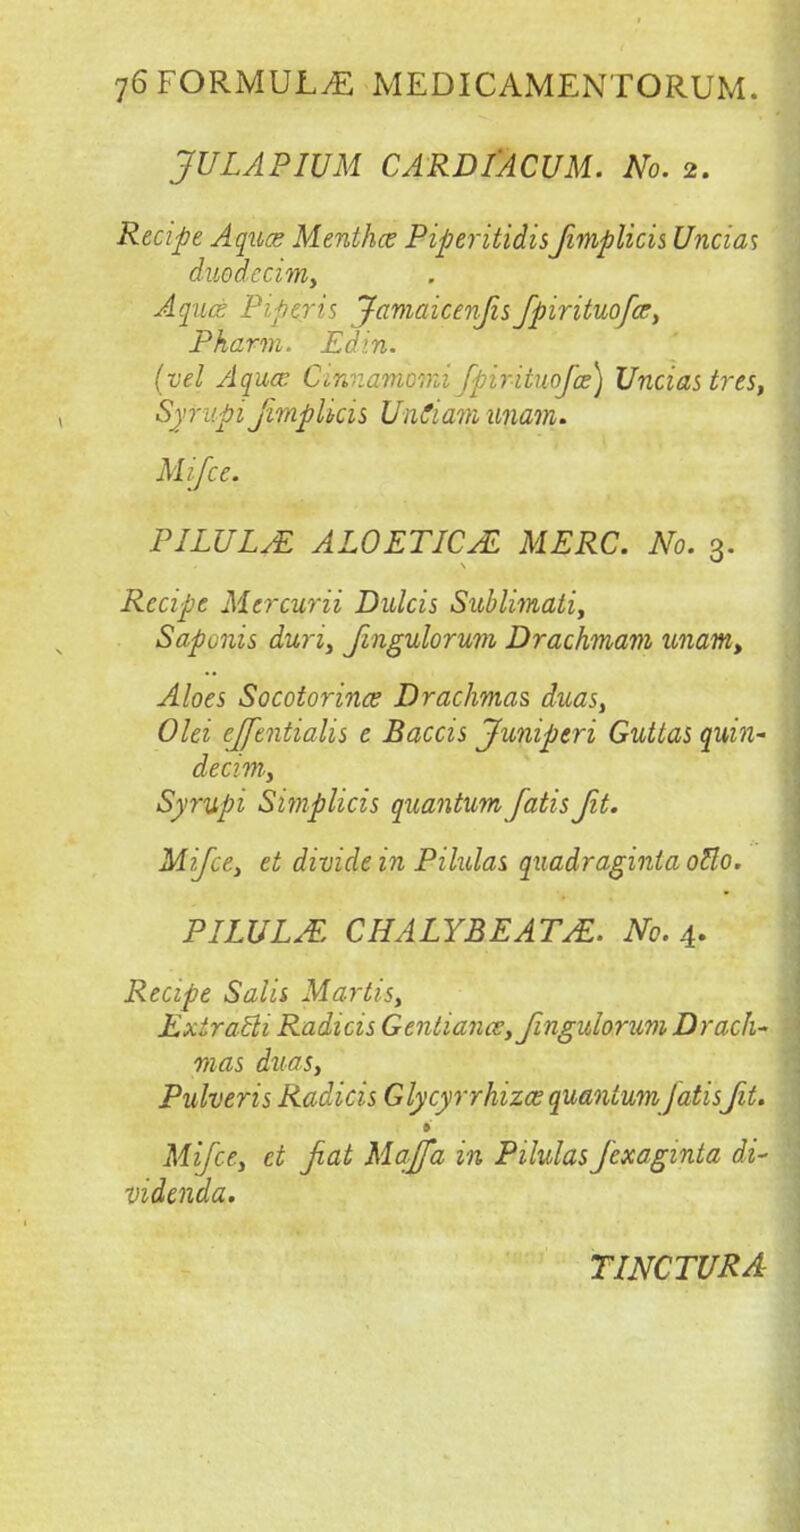 76 FORMULÆ MEDICAMENTORUM.
JULAPIUM CARDIACUM. No. 2.
Recipe Aquæ Menthæ Piperitidis ſimplicis Uncias
duodecim,
Aquæ Piperis Jamaicenſis ſpirituoſæ,
Pharm. Edin.
(vel Aquæ Cinnamomi ſpirituoſæ) Uncias tres,
Syrupi ſimplicis Unciam unam.
Miſce.
PILULÆ ALOETICÆ MERC. No. 3.
Recipe Mercurii Dulcis Sublimati,
Saponis duri, ſingulorum Drachmam unam,
Aloes Socotorinæ Drachmas duas,
Olei eſſentialis e Baccis Juniperi Guttas quin-
decim,
Syrupi Simplicis quantum ſatis ſit.
Miſce, et divide in Pilulas quadraginta octo.
PILULÆ CHALYBEATÆ. No. 4.
Recipe Salis Martis,
Extracti Radicis Gentianæ, ſingulorum Drach-
mas duas,
Pulveris Radicis Glycyrrhizæ quantum ſatis ſit.
Miſce, et fiat Maſſa in Pilulas ſexaginta di-
videnda.
TINCTURA